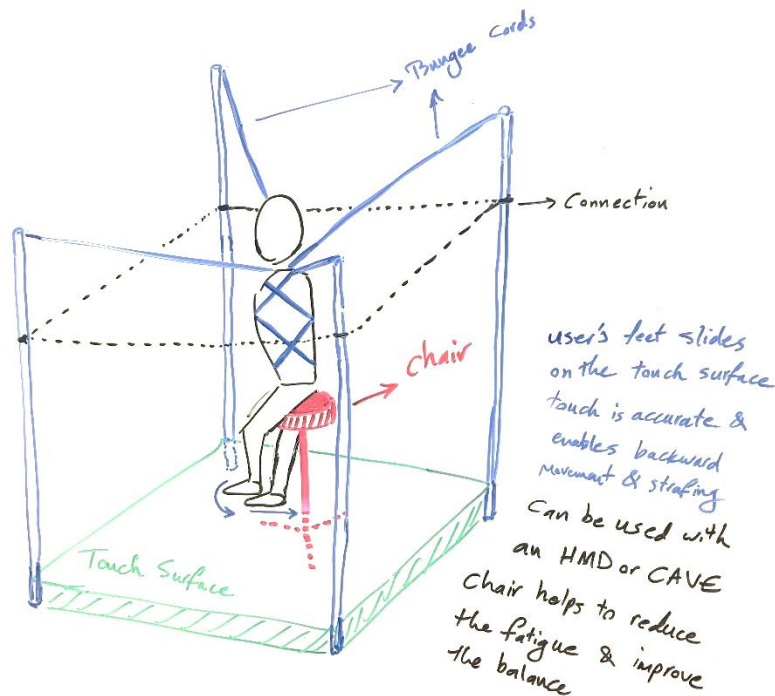 Bungee Cords
Connection
Chair
user's feet slides
on the touch surface
touch is accurate &
enables backward
movement & strafing
Can be used with
an HMD or CAVE
Chair helps to reduce
the fatigue & improve
the balance
Touch Surface